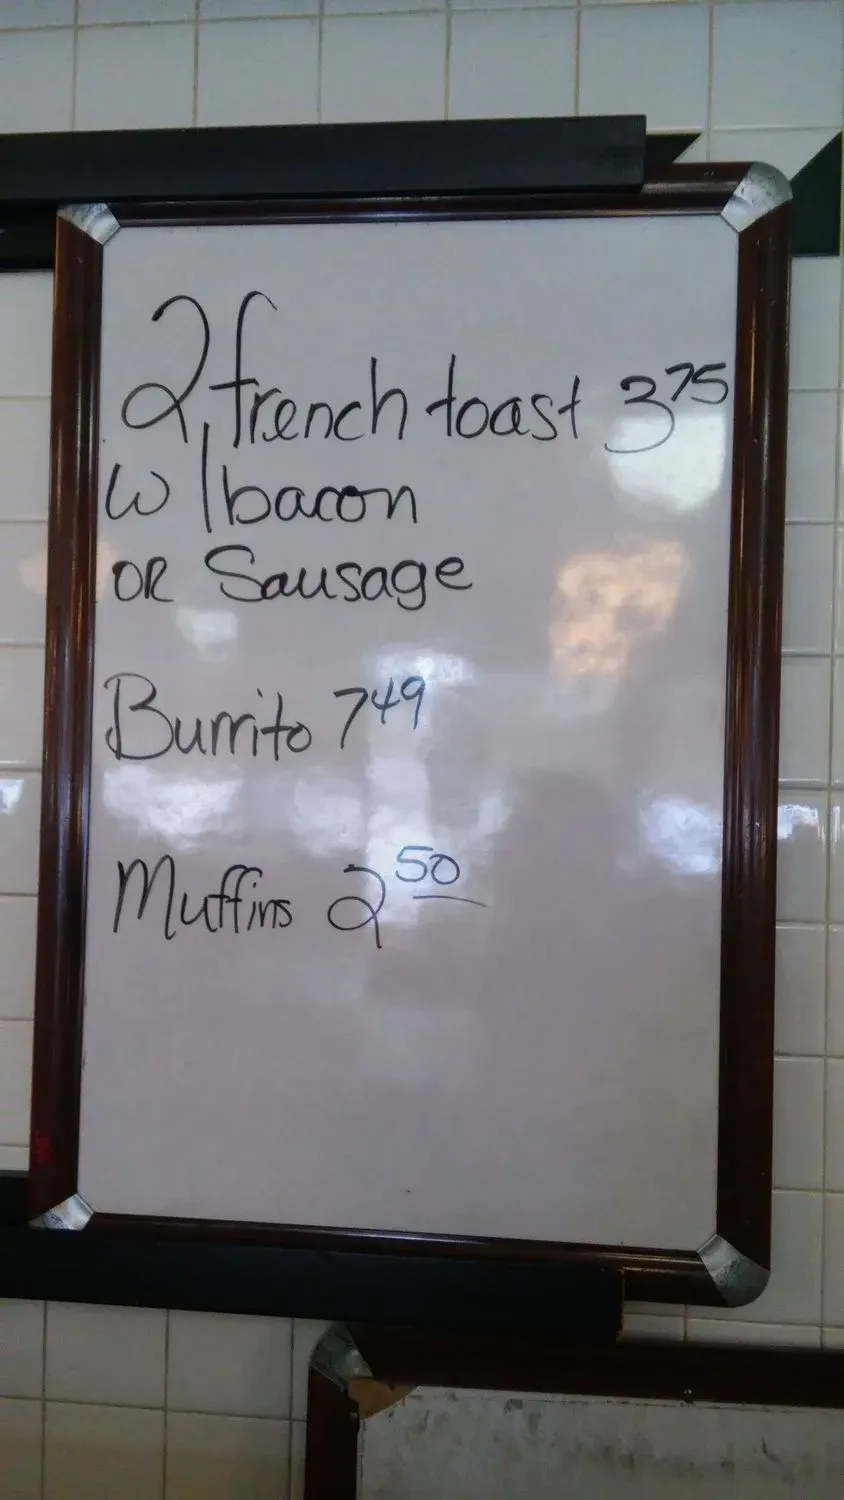 2 french toast 3 75
w/bacon
OR Sausage
Burrito 7 49
Muffins 2 50